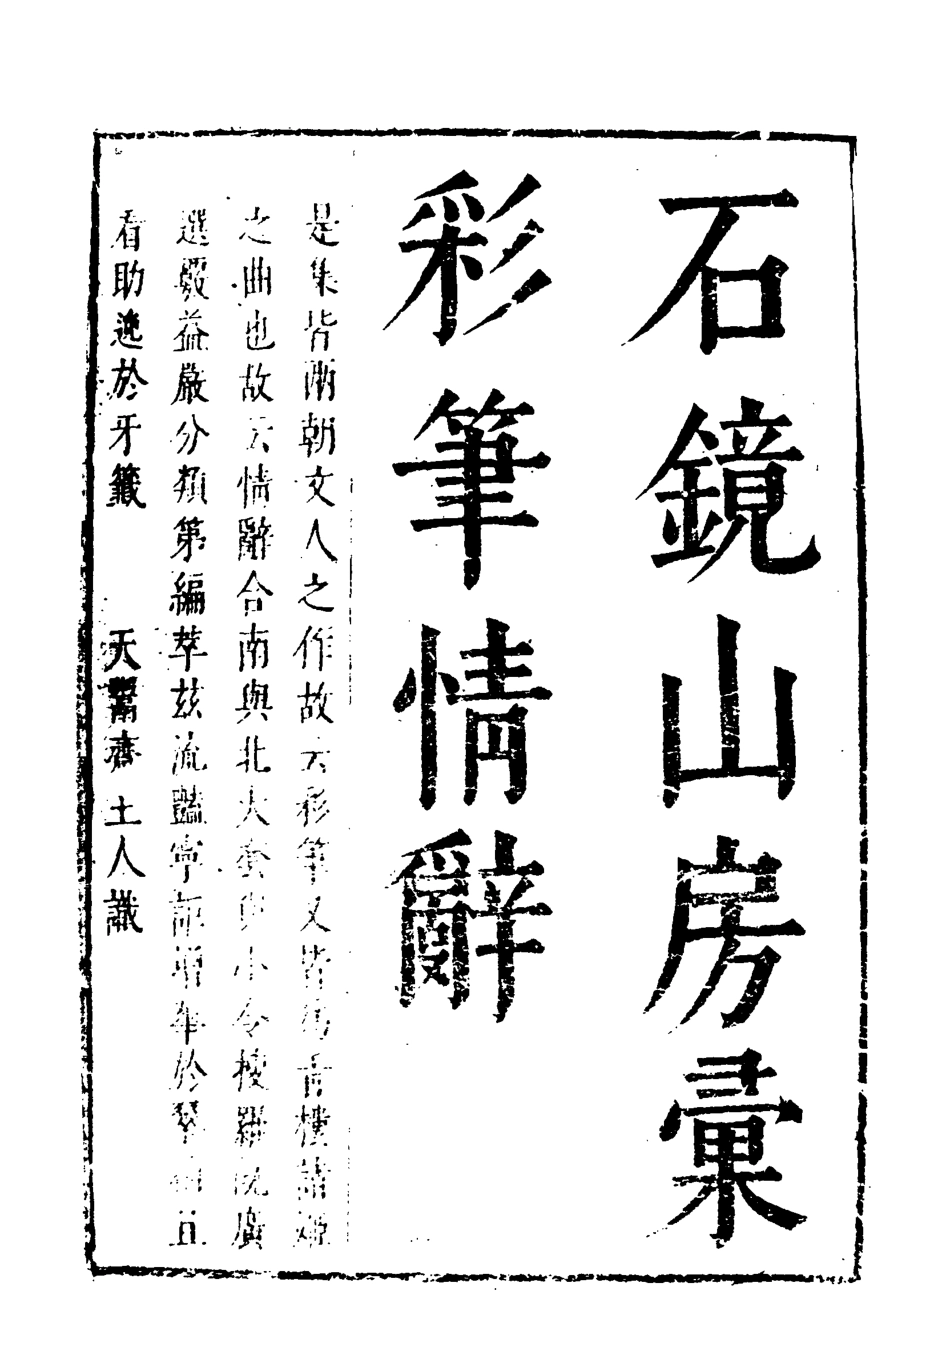 石鏡山房彙
彩筆情辭
是集皆兩朝文人之作故云彩筆又皆為青樓諸姬
之曲也故云情辭合南與北大套與小令搜羅既廣
選緞益嚴分類第編萃茲流豔寧誑增華於琴且
看助逸於牙籤 天鬻齋主人識